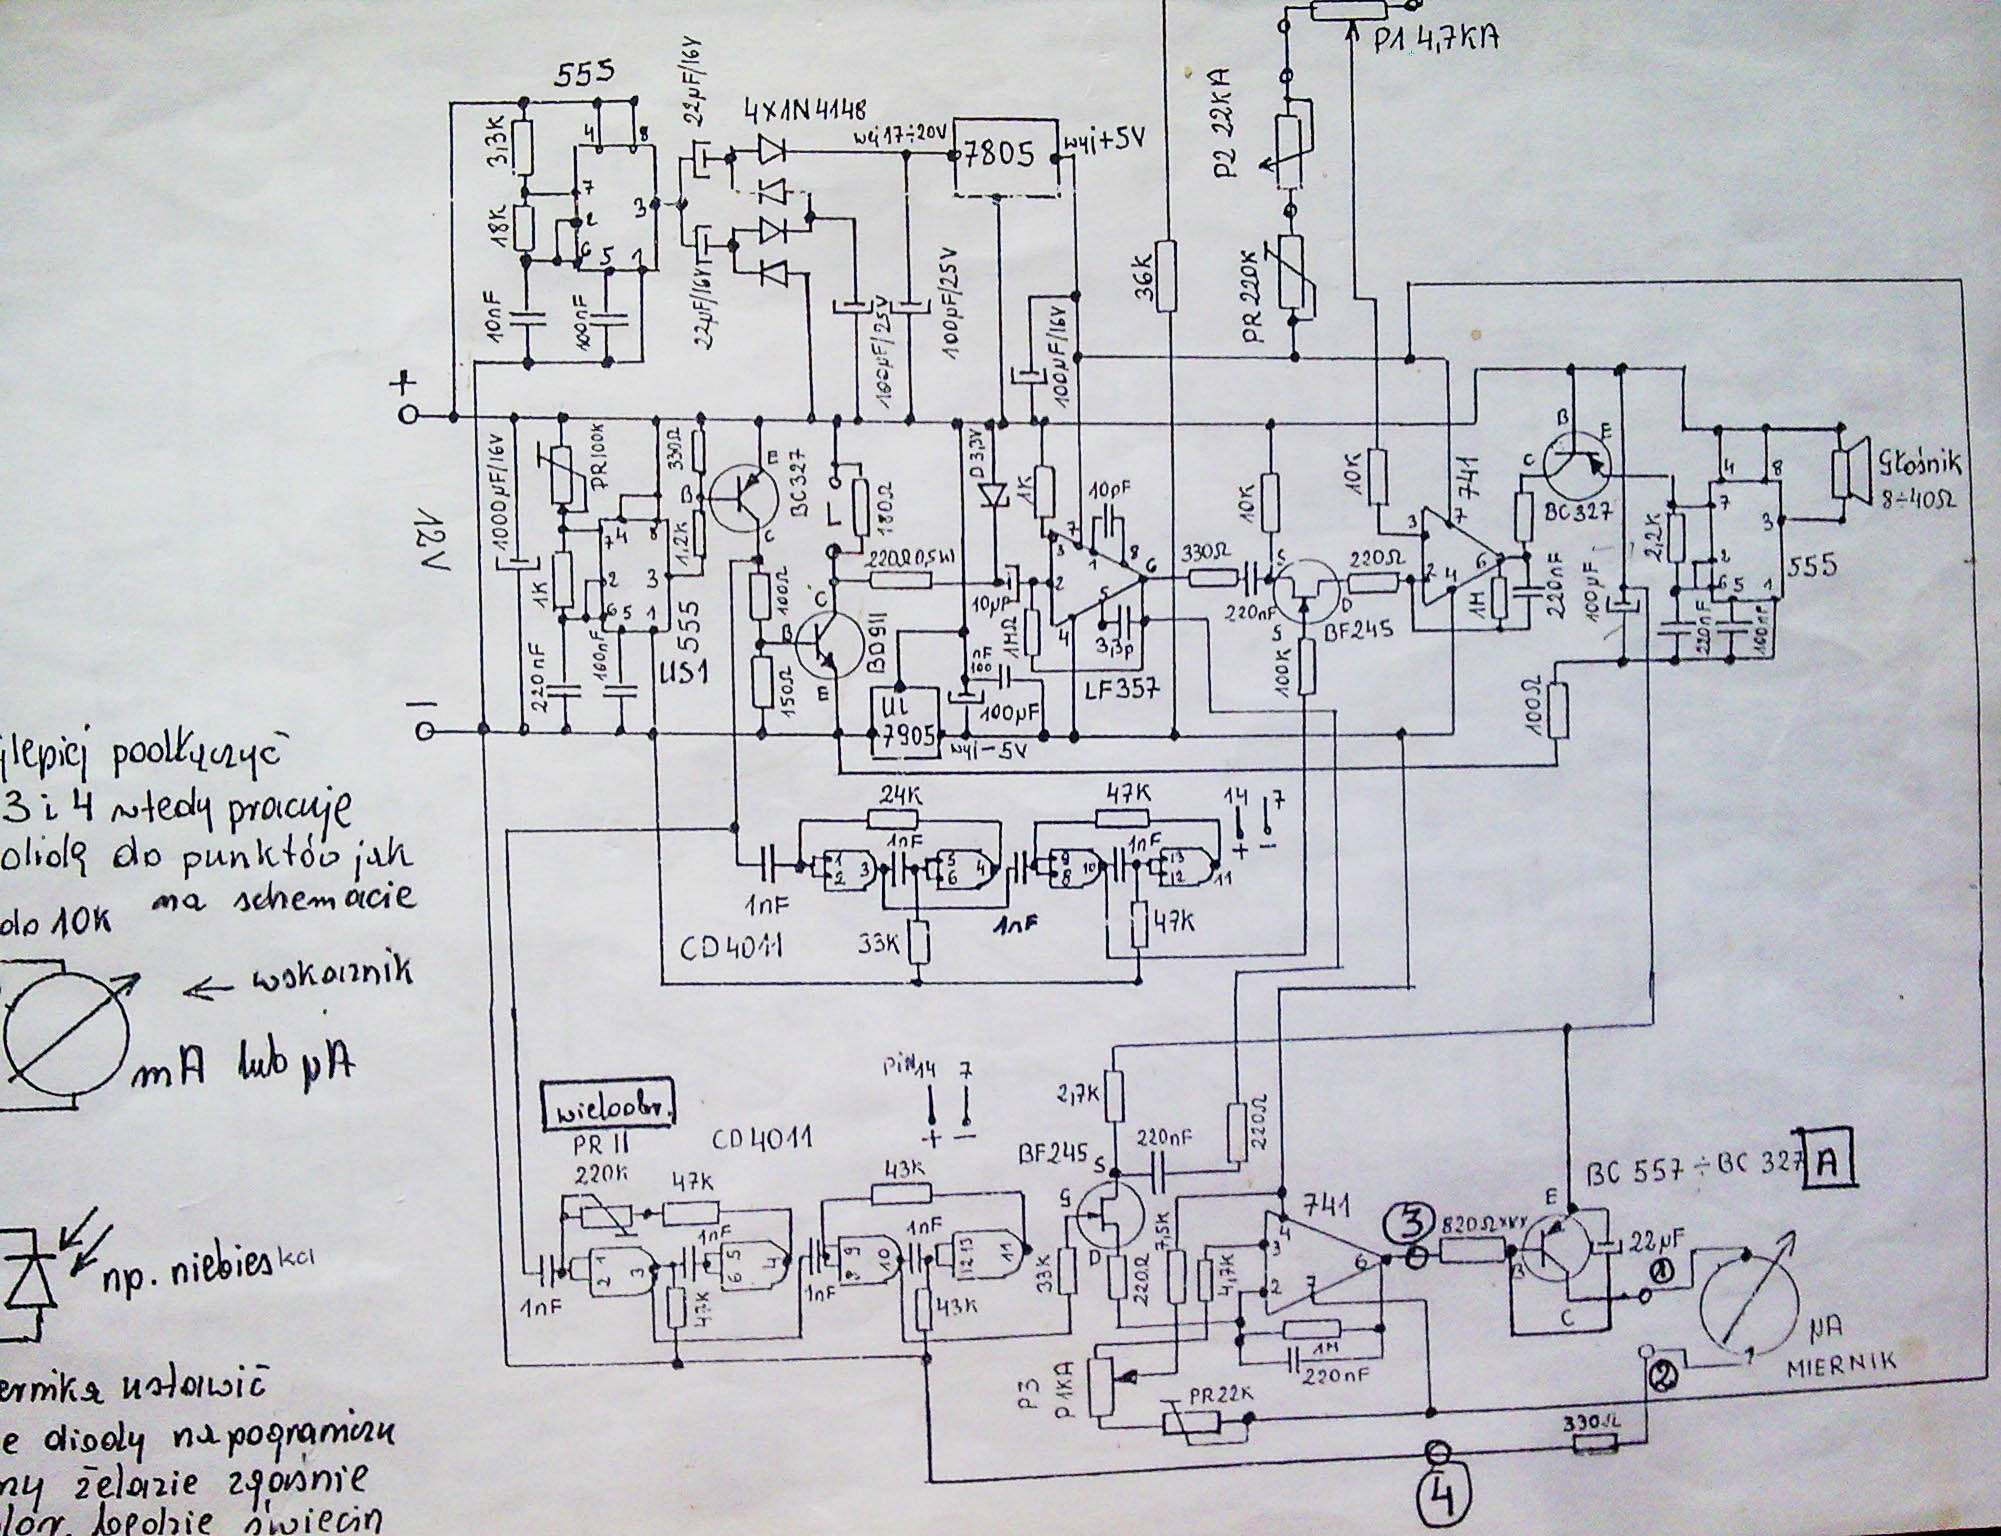 555
3,3K
18K
10nF
100nF
4
8
7
2
6
5
1
3
22µF/16V
22µF/16V
4X1N4148
wej 17÷20V
7805
wyj+5V
100µF/25V
100µF/25V
100µF/16V
36K
P1 4,7KA
P2 22KA
PR 220K
+
12V
1000µF/16V
PR100K
1K
220nF
100nF
7
4
8
2
6
5
1
3
555
US1
330Ω
1,2K
B
E
C
BC327
100Ω
150Ω
180Ω
B
C
E
BD911
220Ω0,5W
D3,3V
1K
10µF
10pF
3
2
7
1
8
6
5
4
1MΩ
3,3p
LF357
nF
100
100µF
7905
wyj-5V
330Ω
220nF
10K
S
S
D
BF245
100K
220Ω
10K
741
3
2
7
6
4
1M
220nF
B
E
C
BC327
100µF
2,2K
7
4
8
2
6
5
1
3
555
220nF
100nF
Głośnik
8÷40Ω
100Ω
−
24K
47K
14
7
+
−
1nF
1
2
3
1nF
5
6
4
1nF
9
8
10
1nF
13
12
11
CD4011
33K
47K
podłączyć
3 i 4 wtedy pracuje
do punktów jak
na schemacie
do 10K
← wskaznik
mA lub µA
np. niebieska
ustawić
e diody na pograniczu
żelazie zgaśnie
będzie świecin
wieloobr.
PR II
220K
47K
CD4011
pin 14
7
+
−
43K
1nF
1
2
3
1nF
5
6
4
47K
1nF
9
8
10
1nF
12
13
11
43K
33K
2,7K
BF245
S
G
D
220nF
220Ω
220Ω
7,5K
4,7K
741
3
2
4
7
6
1M
220nF
P3
P1KA
PR22K
3
820Ω***
BC 557 ÷ BC 327
A
E
B
C
22µF
1
2
µA
MIERNIK
330Ω
4